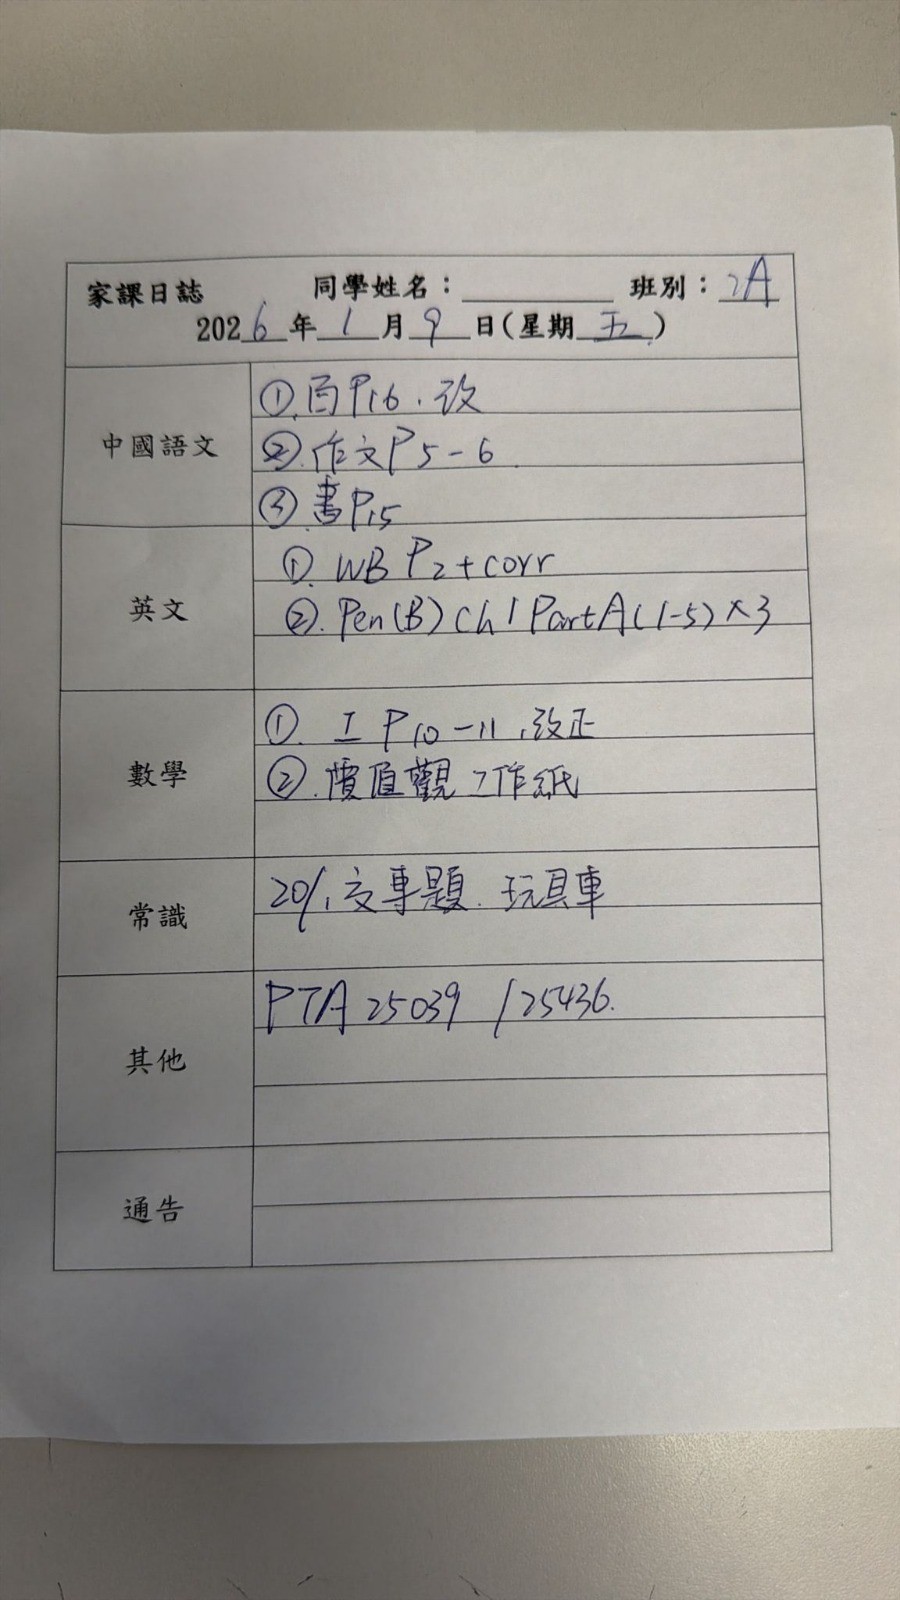 家課日誌 同學姓名：________ 班別：2A
2026年1月9日(星期五)
中國語文
①.百P16.改
②.作文P5-6.
③.書P15
英文
①. WB P2+corr
②. Pen(B) ch1 PartA(1-5)×3
數學
①. 工 P10-11.改正
②.價值觀工作紙
常識
20/1交專題.玩具車
其他
PTA 25039 /25436.
通告